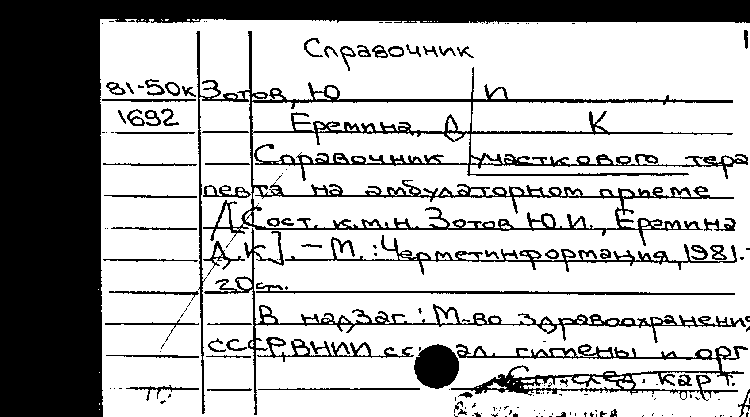 Справочник
81-50к Зотов, Ю И
1692 Еремина, Д К
Справочник участкового тера
певта на амбулаторном приеме
/[Сост. к.м.н. Зотов Ю.И., Еремина
Д.К]. – М. : Черметинформация, 1981. -
20 cm.
В надзаг. : М-во здравоохранения
СССР, ВНИИ гигиены и орг
См. след. карт.